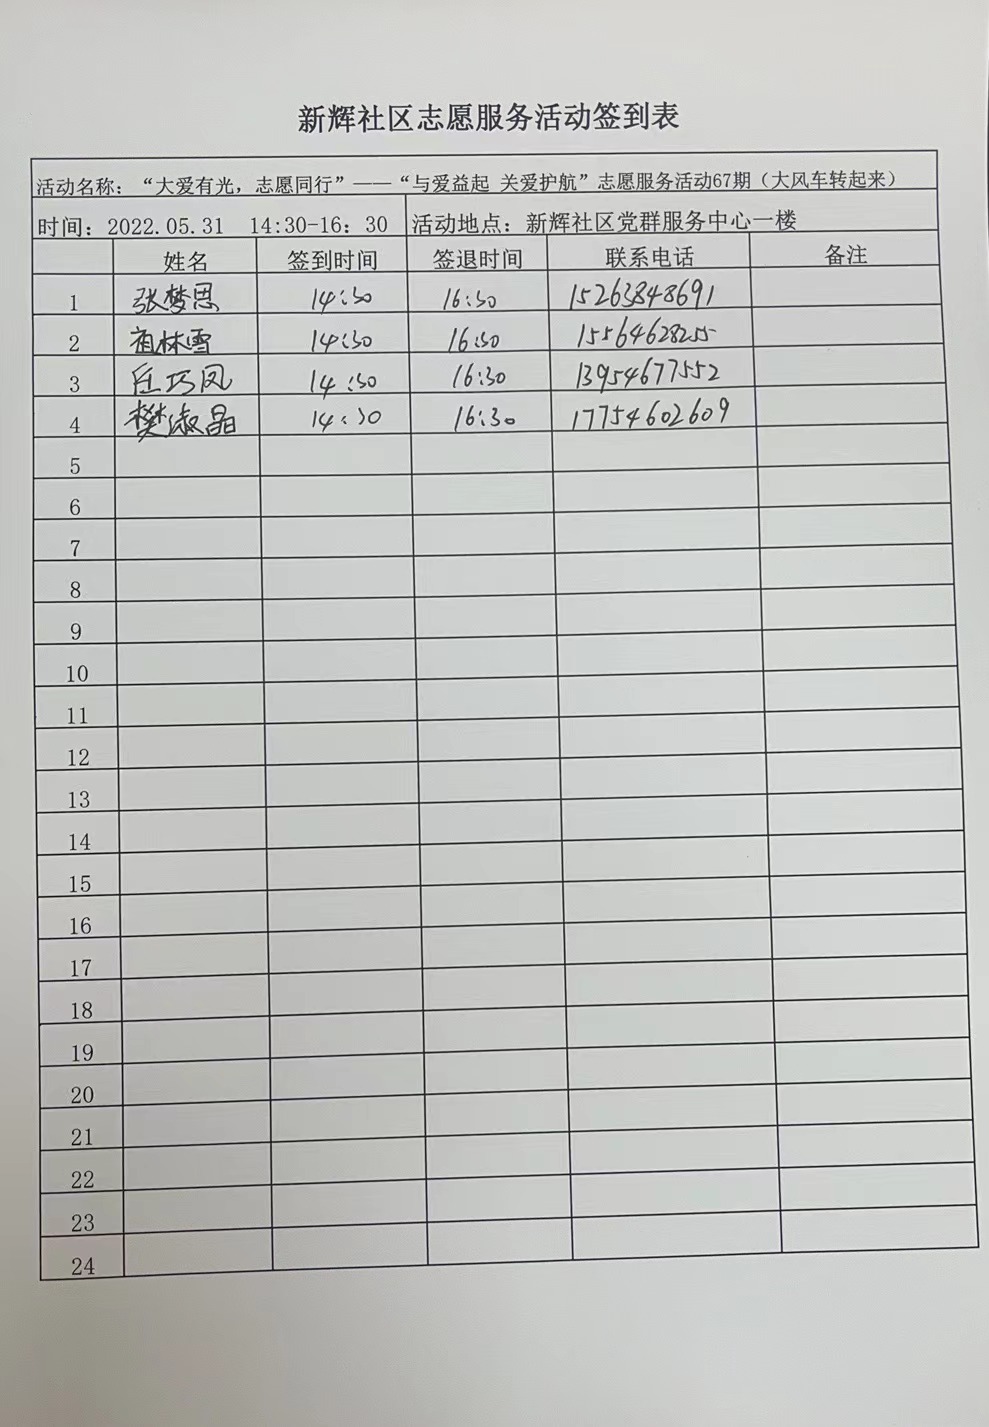 新辉社区志愿服务活动签到表
活动名称：“大爱有光，志愿同行”——“与爱益起 关爱护航”志愿服务活动67期（大风车转起来）
时间：2022.05.31 14:30-16：30 活动地点：新辉社区党群服务中心一楼
姓名 签到时间 签退时间 联系电话 备注
1 张梦思 14:30 16:30 15263848691
2 祖林雪 14:30 16:30 15564628255
3 任巧凤 14:30 16:30 13954677552
4 樊淑晶 14:30 16:30 17754602609
5
6
7
8
9
10
11
12
13
14
15
16
17
18
19
20
21
22
23
24